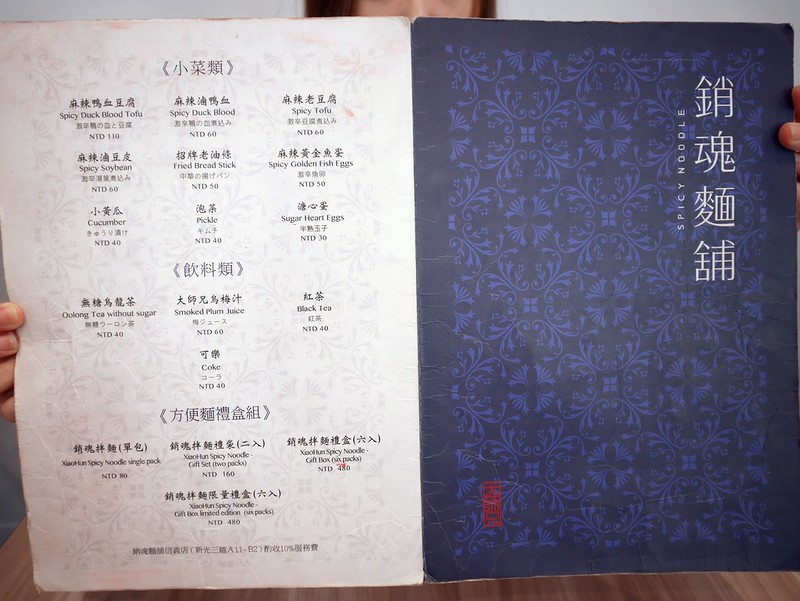 《小菜類》
麻辣鴨血豆腐
Spicy Duck Blood Tofu
激辛鴨の血と豆腐
NTD 110
麻辣滷鴨血
Spicy Duck Blood
激辛鴨の血煮込み
NTD 60
麻辣老豆腐
Spicy Tofu
激辛豆腐煮込み
NTD 60
麻辣滷豆皮
Spicy Soybean
激辛湯葉煮込み
NTD 60
招牌老油條
Fried Bread Stick
中華の揚げパン
NTD 50
麻辣黃金魚蛋
Spicy Golden Fish Eggs
激辛魚卵
NTD 50
小黃瓜
Cucumber
きゅうり漬け
NTD 40
泡菜
Pickle
キムチ
NTD 40
溏心蛋
Sugar Heart Eggs
半熟玉子
NTD 30
《飲料類》
無糖烏龍茶
Oolong Tea without sugar
無糖ウーロン茶
NTD 40
大師兄烏梅汁
Smoked Plum Juice
梅ジュース
NTD 60
紅茶
Black Tea
紅茶
NTD 40
可樂
Coke
コーラ
NTD 40
《方便麵禮盒組》
銷魂拌麵(單包)
XiaoHun Spicy Noodle single pack
NTD 80
銷魂拌麵禮袋(二入)
XiaoHun Spicy Noodle -
Gift Set (two packs)
NTD 160
銷魂拌麵禮盒(六入)
XiaoHun Spicy Noodle -
Gift Box (six packs)
NTD 480
銷魂拌麵限量禮盒(六入)
XiaoHun Spicy Noodle -
Gift Box limited edition (six packs)
NTD 480
銷魂麵舖信義店(新光三越A11-B2)酌收10%服務費
銷魂麵舖
SPICY NOODLE